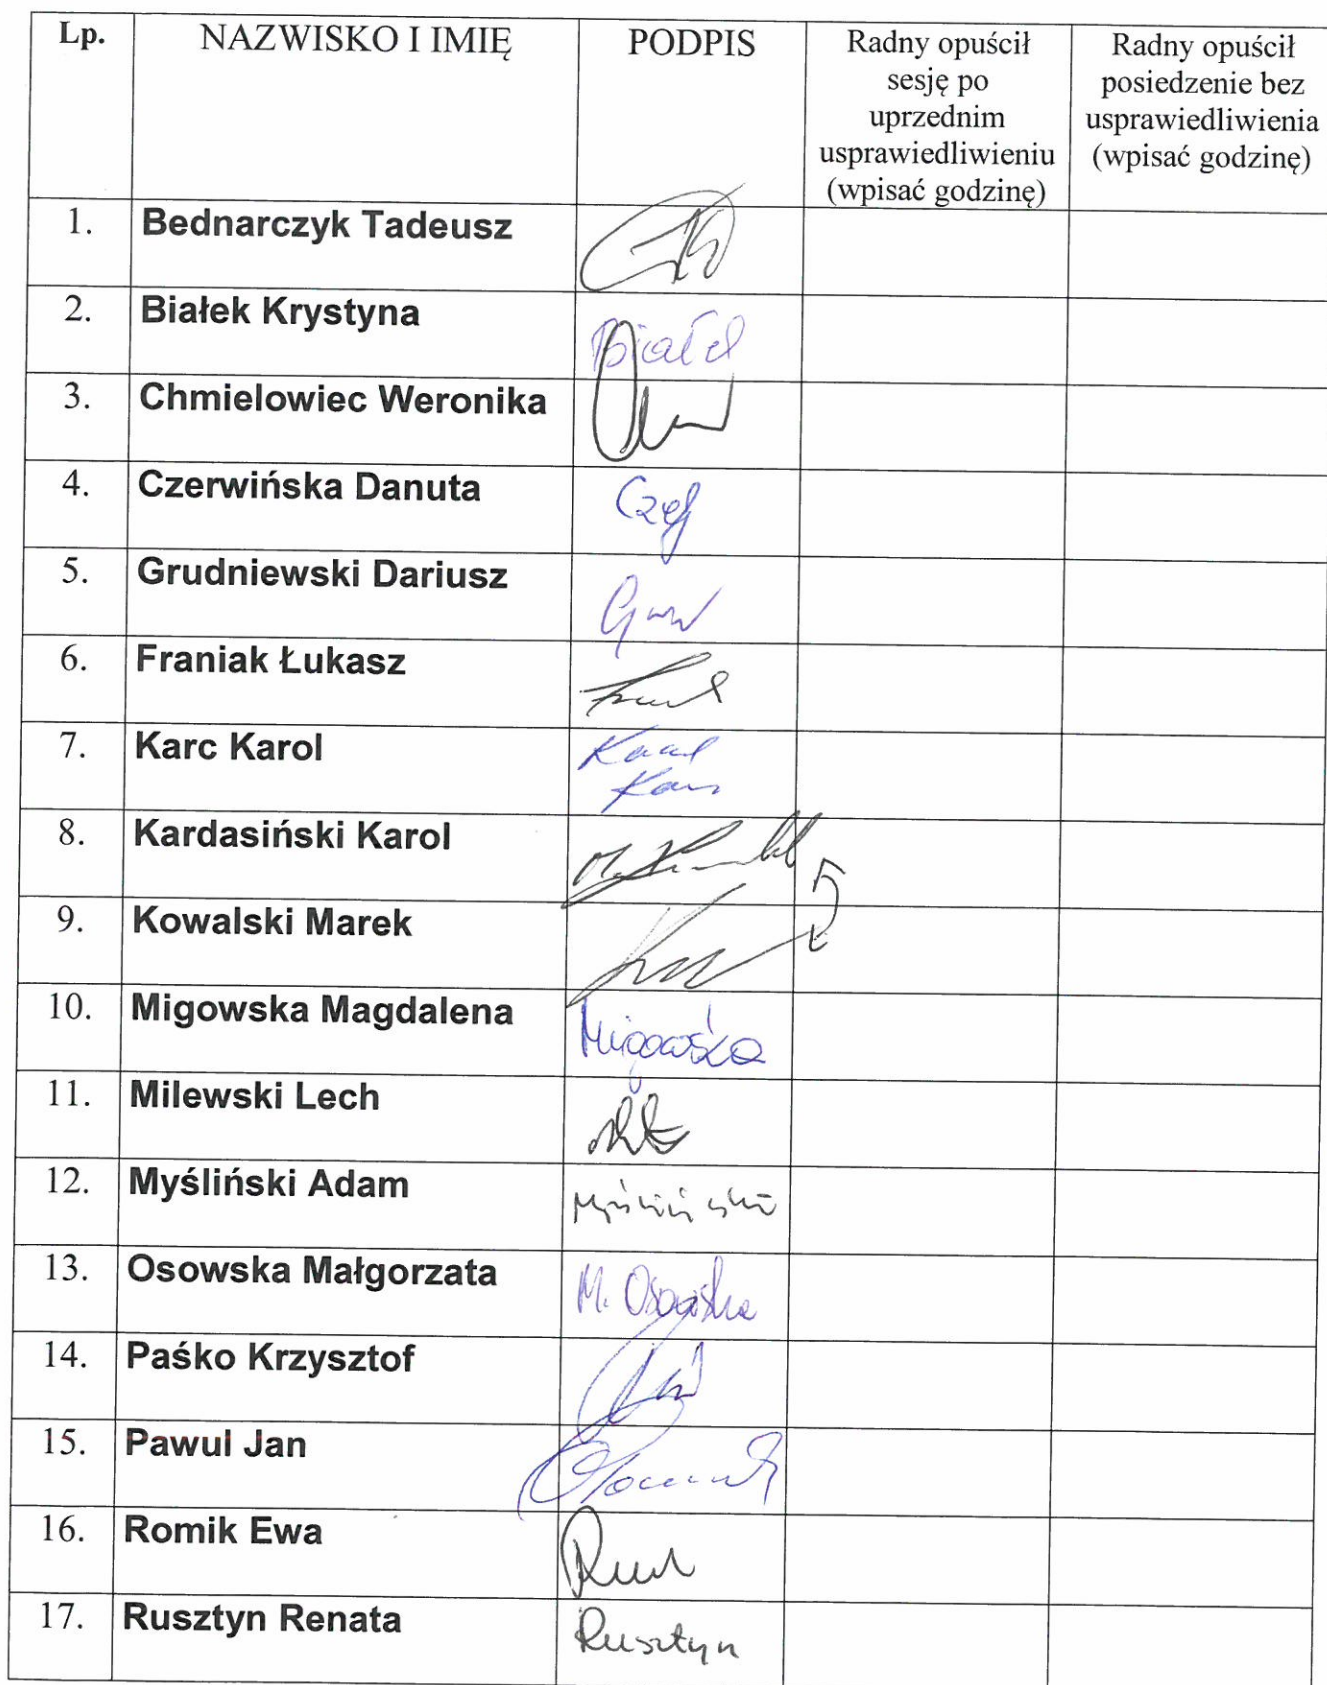 Lp.
NAZWISKO I IMIĘ
PODPIS
Radny opuścił
sesję po
uprzednim
usprawiedliwieniu
(wpisać godzinę)
Radny opuścił
posiedzenie bez
usprawiedliwienia
(wpisać godzinę)
1. Bednarczyk Tadeusz
2. Białek Krystyna
3. Chmielowiec Weronika
4. Czerwińska Danuta
5. Grudniewski Dariusz
6. Franiak Łukasz
7. Karc Karol
8. Kardasiński Karol
9. Kowalski Marek
10. Migowska Magdalena Migowska
11. Milewski Lech
12. Myśliński Adam Myśliński
13. Osowska Małgorzata M. Osowska
14. Paśko Krzysztof
15. Pawul Jan
16. Romik Ewa
17. Rusztyn Renata Rusztyn